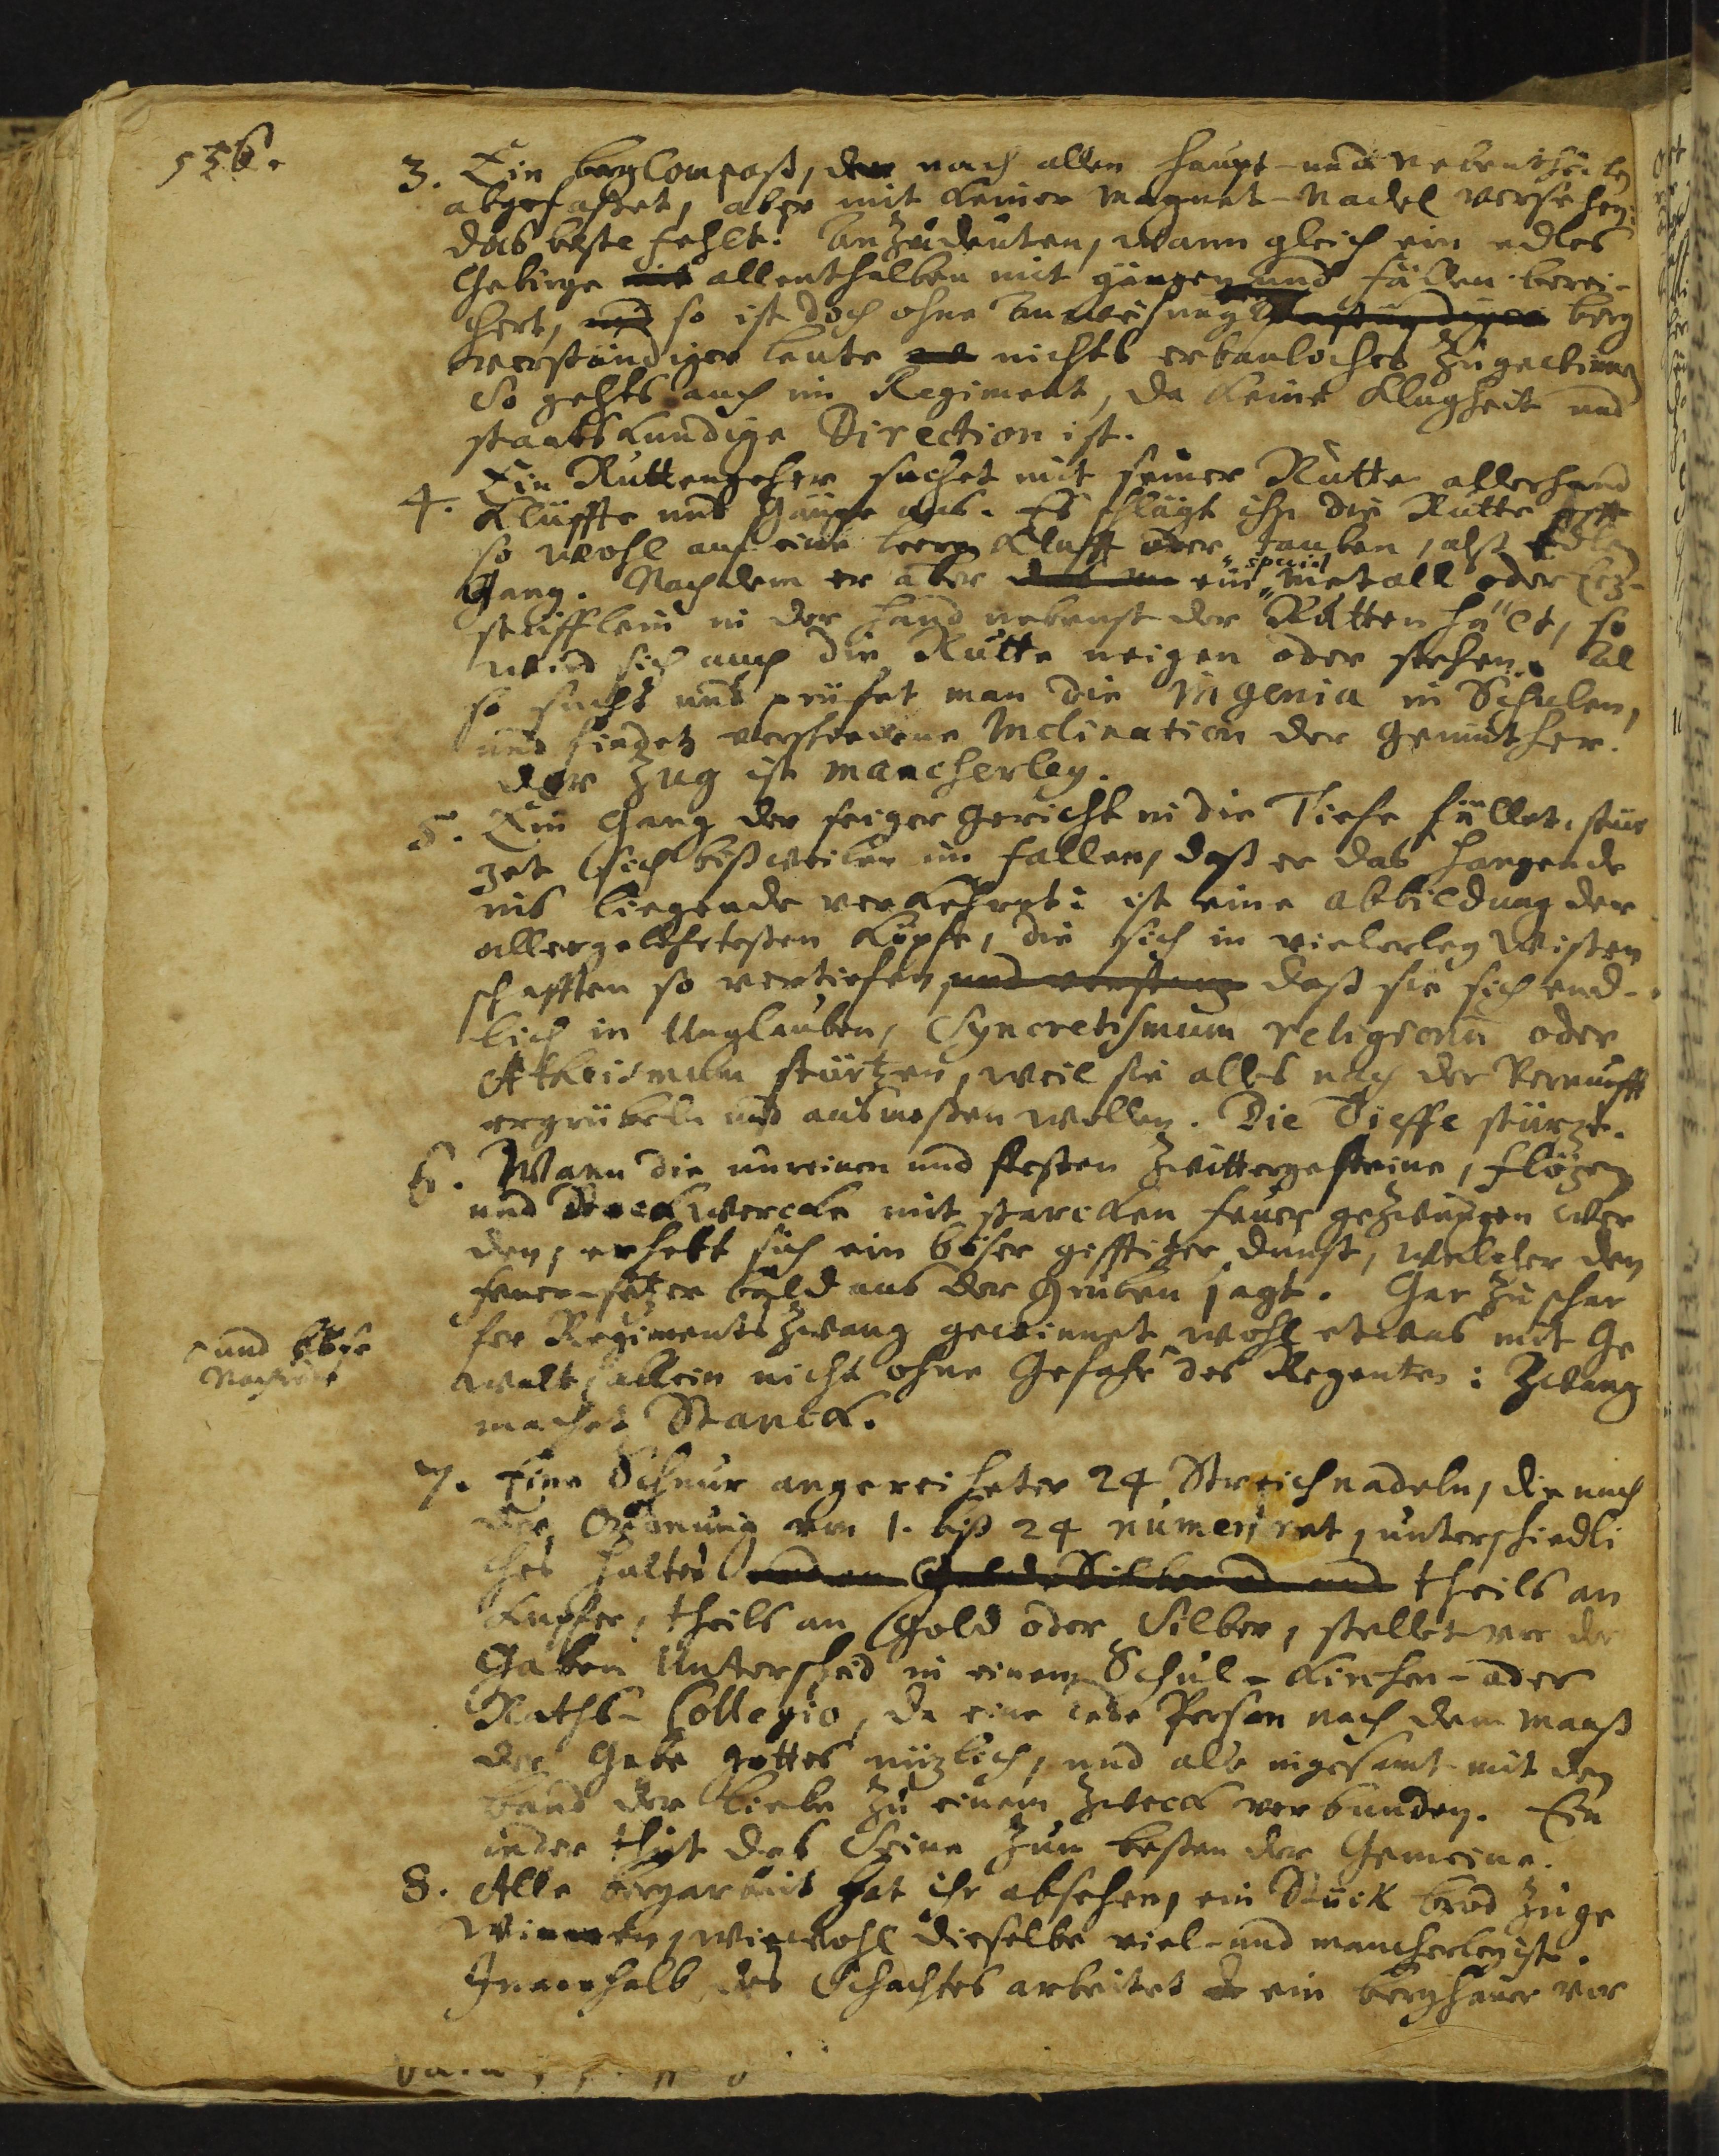 536.
3. Ein bergCompaß, der nach allen Haupt- und Nebentheilen
abgefaßet, aber mit keiner Magnet-Nadel versehen:
das beste fehlt. Anzudeuten, wann gleich ein edles
Gebirge allenthalben mit gängen und fällen berei-
chert, so ist doch ohne Anweisung berg
verständiger leute nichts erbauliches zugewinnen
So gehts auch im Regiment, da keine Klugheit und
staatskundige Direction ist.
4. Ein Ruttengeher suchet mit seiner Rutte allerhand
Klüffte und Gänge aus. Es schlägt ihm die Rutte offt
so wohl auf eine leere Klufft oder tauben, alß edlen
Gang. Nachdem er aber ein special Metall oder Erz-
stüfflein in der Hand nebenst der Rutten hält, so
wird sich auch die Rutte neigen oder stehen. Al
so sucht und prüfet man die Ingenia in Schulen,
und findet verschiedene Inclination der Gemüther.
der Zug ist mancherley.
5. Ein Gang der seiger gericht in die Tiefe fället, stür
zet sich bißweilen im fallen, daß er das Hangende
ins liegende verkehret: ist eine abbildung der
allergelehrtesten Köpfe, die sich in vielerley Wißen
schafften so vertiefen, daß sie sich end-
lich in Unglauben, Syncretismum religionū oder
Atheismum stürtzen, weil sie alles nach der Vernunfft
ergrübeln und ausmeßen wollen. Die Tieffe stürzt.
6. Wann die unreinen und festen Zwittergesteine, Flözen
und Stockwercke mit starcken feuer gezwungen wer
den, erhebt sich ein böser gifftiger dunst, welcher den
feuer-setzer bald aus der Gruben jagt. Gar zu schar
fer Regiments Zwang gewinnet wohl etwas mit Ge
walt, allein nicht ohne Gefahr des Regenten: Zwang
und böse
Nachrede
machet Stanck.
7. Eine Schnur angereiheter 24 Streichnadeln, die nach
der Ordnung von 1. biß 24 numeriret, unterschiedli
ches Haltes theils an
Kupffer, theils an Gold oder Silber, stellet vor der
Gaben Unterscheid in einem Schul- Kirchen- oder
Raths-Collegio, da eine iede Person nach dem maaß
der Gabe Gottes nüzlich, und alle ingesamt mit den
band der liebe zu einem Zweck verbunden. Ein
ieder thut das Seine zum besten der Gemeine.
8. Alle bergarbeit hat ihr absehen, ein Stück brod zuge
winnen, wiewohl dieselbe viel- und mancherley ist.
Innerhalb des Schachtes arbeitet ein berghauer vor